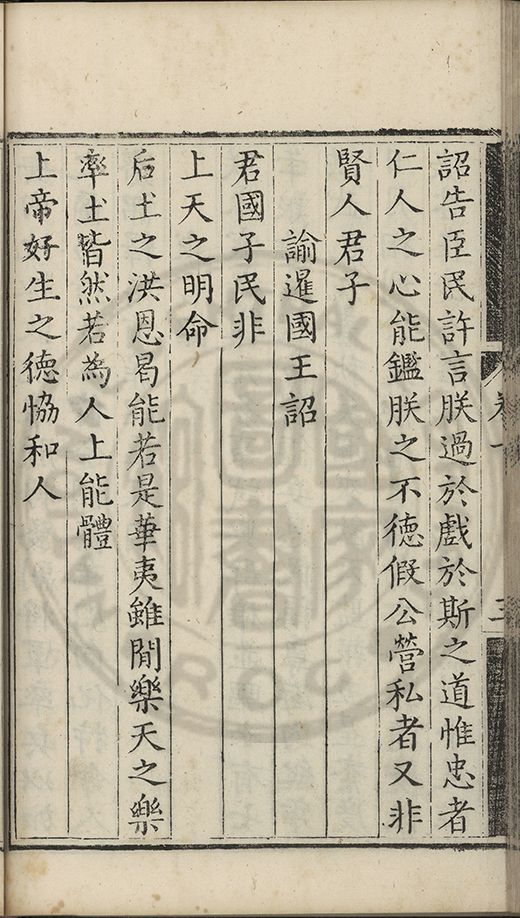 詔告臣民許言朕過於戲於斯之道惟忠者
仁人之心能鑑朕之不德假公營私者又非
賢人君子
諭暹國王詔
君國子民非
上天之明命
后土之洪恩曷能若是華夷雖閒樂天之樂
率土皆然若為人上能體
上帝好生之德恊和人